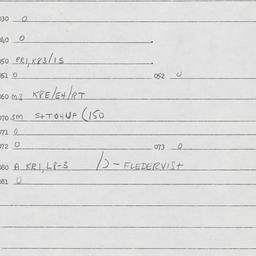 030 0
040 0
050 PR1, KP3/1S
051 0 052 0
060 M3 KPE/E4/RT
070 SM S+TO4UP (150
071 0
072 0 073 0
080 A KR1, LP-3 /) - FLEDERVIST
081 0